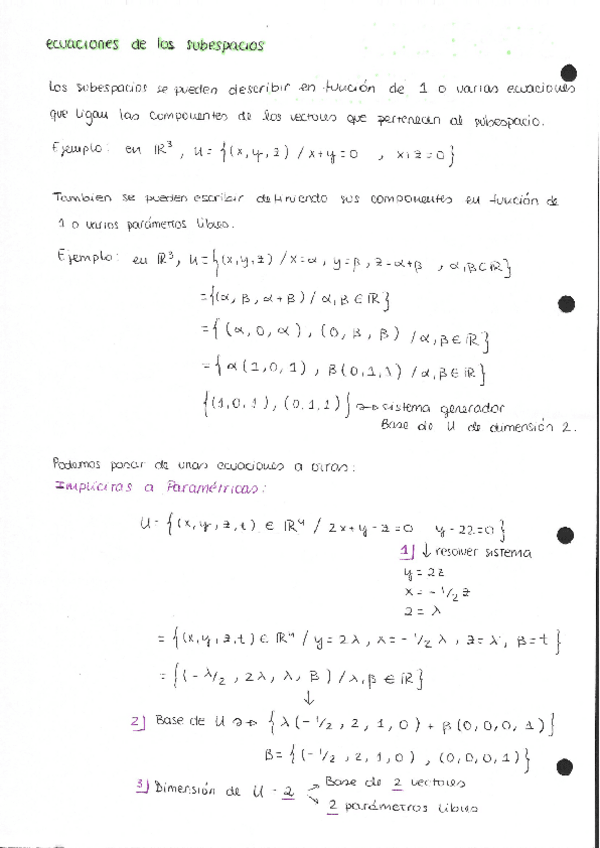 ecuaciones de los subespacios
Los subespacios se pueden describir en función de 1 o varias ecuaciones
que ligan las componentes de los vectores que pertenecen al subespacio.
Ejemplo: en ℝ³, U = {(x, y, z) / x+y=0 , x+z=0}
Tambien se pueden escribir definiendo sus componentes en función de
1 o varios parámetros libres.
Ejemplo: en ℝ³, U = {(x, y, z) / x=α, y=β, z=α+β , α,β∈ℝ}
= {(α, β, α+β) / α,β∈ℝ}
= {(α, 0, α), (0, β, β) / α,β∈ℝ}
= {α(1,0,1), β(0,1,1) / α,β∈ℝ}
{(1,0,1), (0,1,1)} → sistema generador
Base de U de dimensión 2.
Podemos pasar de unas ecuaciones a otras:
Implícitas a Paramétricas:
U = {(x, y, z, t) ∈ ℝ⁴ / 2x+y-z=0 y-2z=0}
1) ↓ resolver sistema
y = 2z
x = -1/2 z
z = λ
= {(x, y, z, t) ∈ ℝ⁴ / y=2λ, x=-1/2 λ, z=λ, β=t}
= {(-λ/2, 2λ, λ, β) / λ,β ∈ ℝ}
↓
2) Base de U → {λ(-1/2, 2, 1, 0) + β(0, 0, 0, 1)}
B = {(-1/2, 2, 1, 0), (0, 0, 0, 1)}
3) Dimensión de U = 2 → Base de 2 vectores
↘ 2 parámetros libres